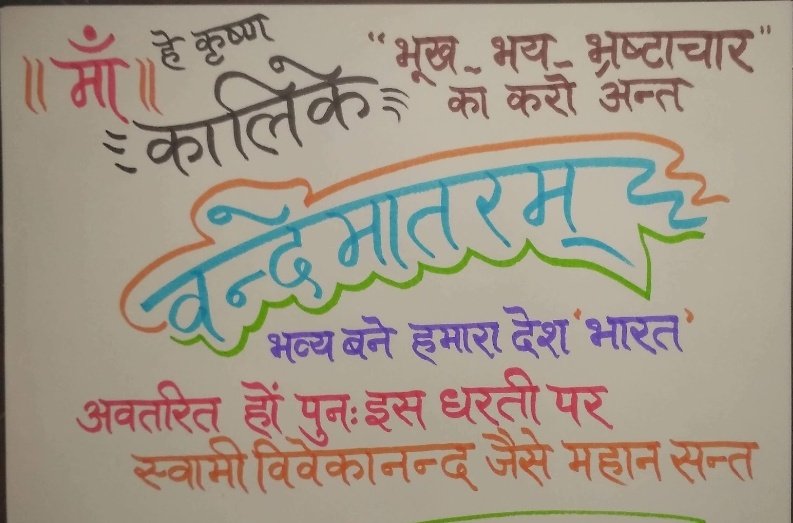 ॥ माँ ॥ हे कृष्ण
कालिके
"भूख - भय - भ्रष्टाचार"
का करो अन्त
वन्दे मातरम्
भव्य बने हमारा देश 'भारत'
अवतरित हों पुनः इस धरती पर
स्वामी विवेकानन्द जैसे महान सन्त